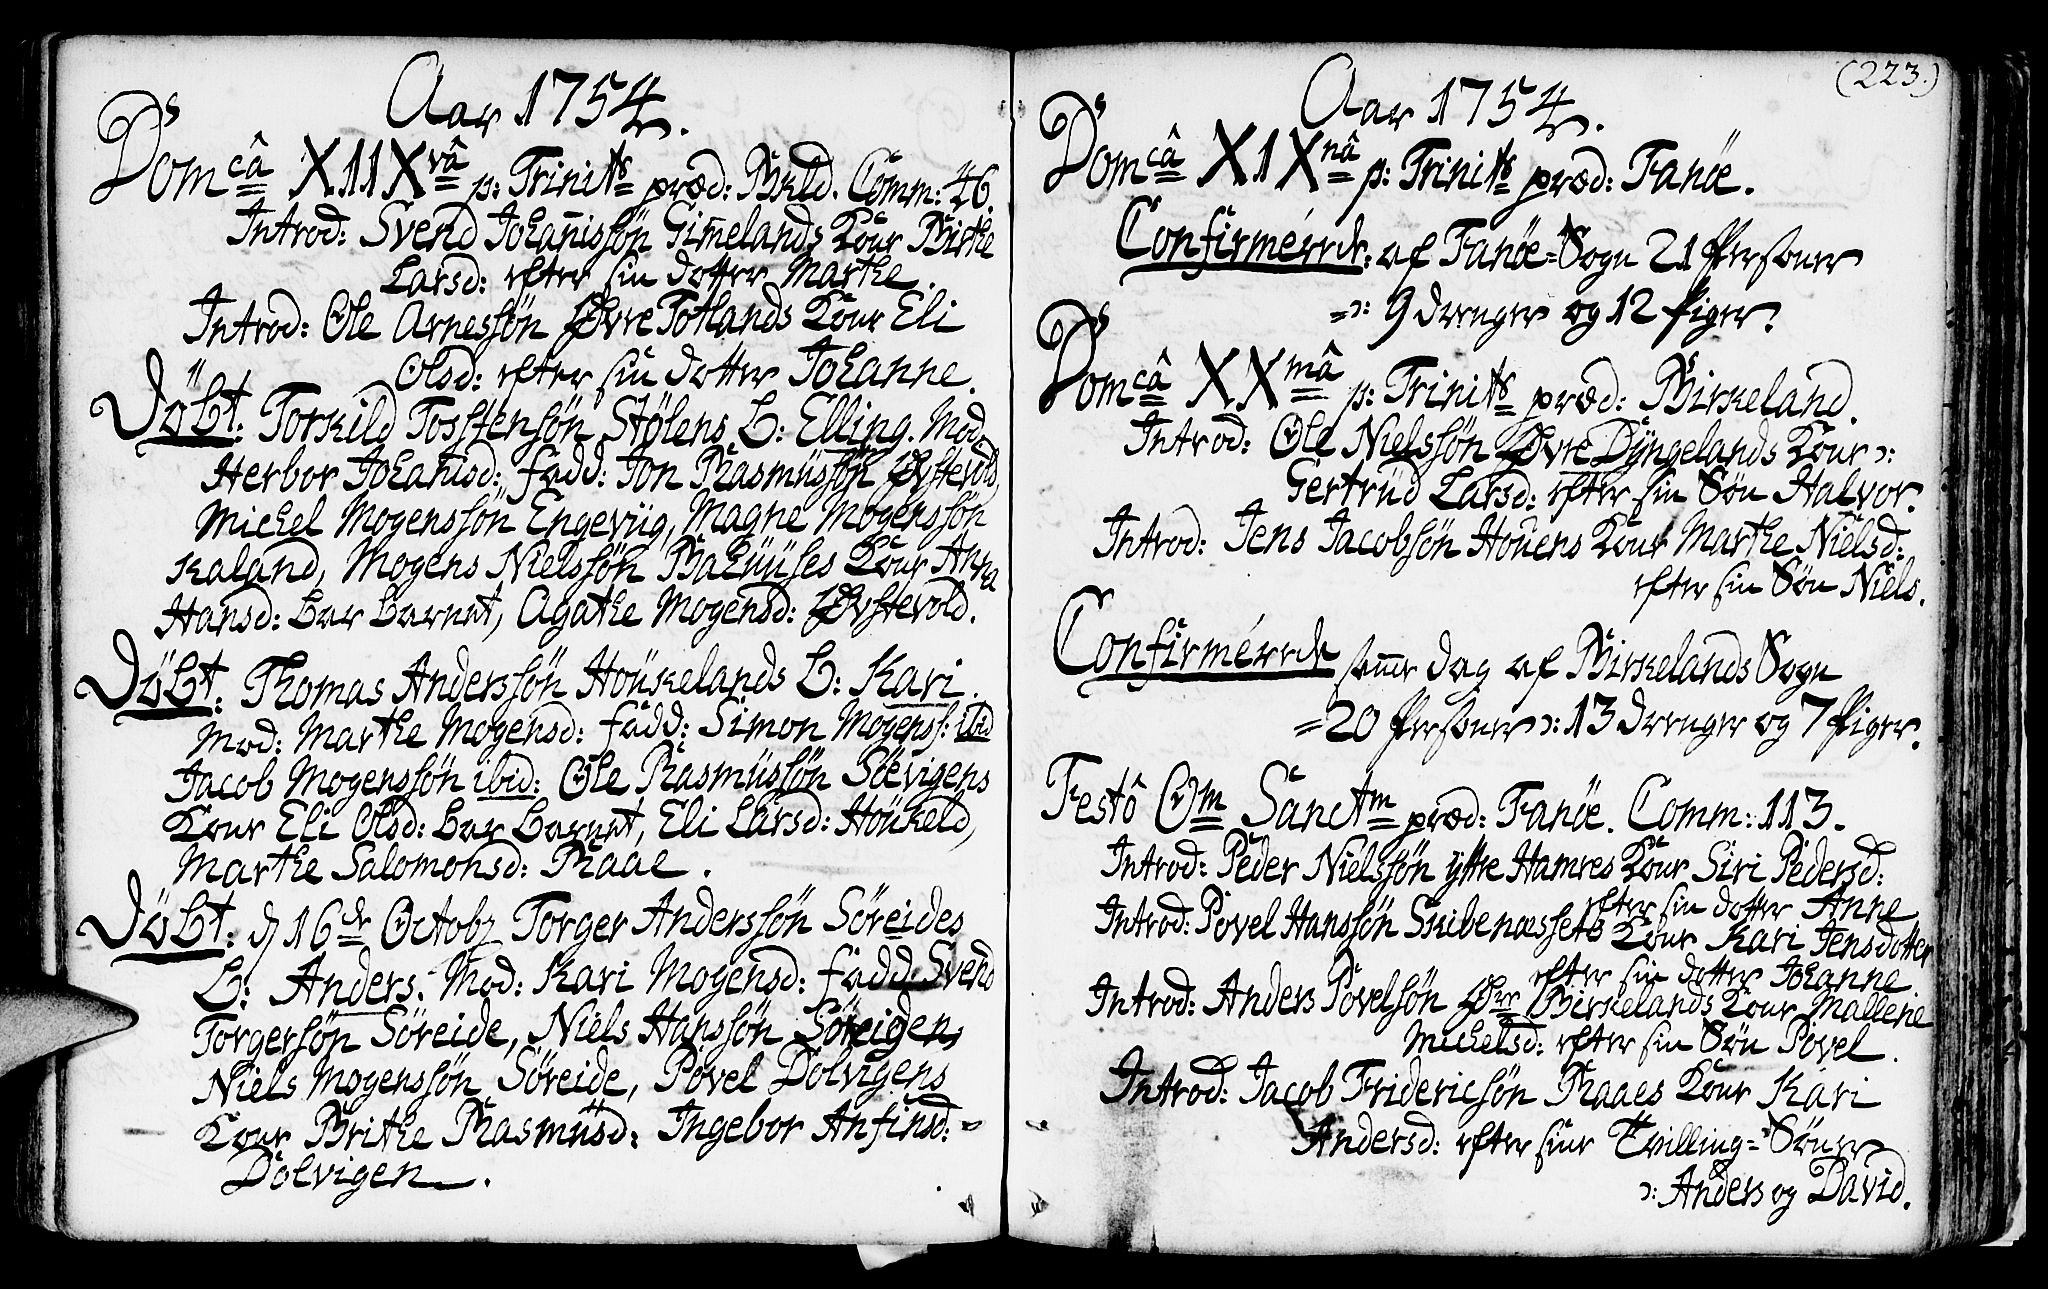 Aar 1754.
Domcâ XIIXvâ p: Trinits præd: Birkld. Comm: 46.
Introd: Svend Johanissøn Gimelands Kone Birthe
Larsd: efter sin dotter Marthe.
Introd: Ole Arnessøn Øvre Totlands Kone Eli
Olsd: efter sin dotter Johanne.
Döbt: Torkild Tosstensøn Stølens b: Elling. Mod:
Herbor Johanisd: fadd: Jon Rasmüssøn Øvstevold,
Michel Mogenssøn Engeviig, Magne Mogenssøn
Kaland, Mogens Nielssøn Bahuuses Kone Anna
Hansd: bar barnet, Agathe Mogensd: Øvstevold.
Döbt: Thomas Anderssøn Houkelands b: Kari.
Mod: Marthe Mogensd: fadd: Simon Mogenss: ibid
Jacob Mogenssøn ibid: Ole Rasmüssøn Søevigens
Kone Eli Olsd: bar barnet, Eli Larsd: Houkeld,
Marthe Salomonsd: Raae.
Döbt: d 16de Octobr Torger Anderssøn Søreides
b: Anders. Mod: Kari Mogensd: fadd: Svend
Torgersøn Søreide, Niels Hanssøn Søreigen,
Niels Mogenssøn Søreide, Povel Dolvigens
Kone Brithe Rasmüsd: Ingebor Anfinsd: -
Dolvigen.
(223.)
Aar 1754.
Domcâ XIXnâ p: Trinits præd: Fanöe.
Confirmérede: af Fanöe-Sogn 21 Personer
=ɔ: 9 drenger og 12 Piger.
Domcâ XXmâ p: Trinits præd: Birkeland.
Introd: Ole Nielssøn Øvre Dÿngelands Kone ɔ:
Gertrüd Larsd: efter sin Søn Halvor.
Introd: Jens Jacobsøn Hovens Kone Marthe Nielsd:
efter sin Søn Niels.
Confirmérede samme dag af Birkelands Sogn
=20 Personer ɔ: 13 drenger og 7 Piger.
Festô Om Sanctm præd: Fanöe. Comm: 113.
Introd: Peder Nielssøn ÿttre Hamres Kone Siri Pedersd:
efter sin dotter Anne
Introd: Povel Hanssøn Skibenæssets Kone Kari Jensdotter
efter sin dotter Johanne
Introd: Anders Povelsøn Øvre Birkelands Kone Mallene
Michelsd: efter sin Søn Povel.
Introd: Jacob Fridericsøn Raaes Kone Kari
Andersd: efter sine Tvilling-Søner
ɔ: Anders og David.